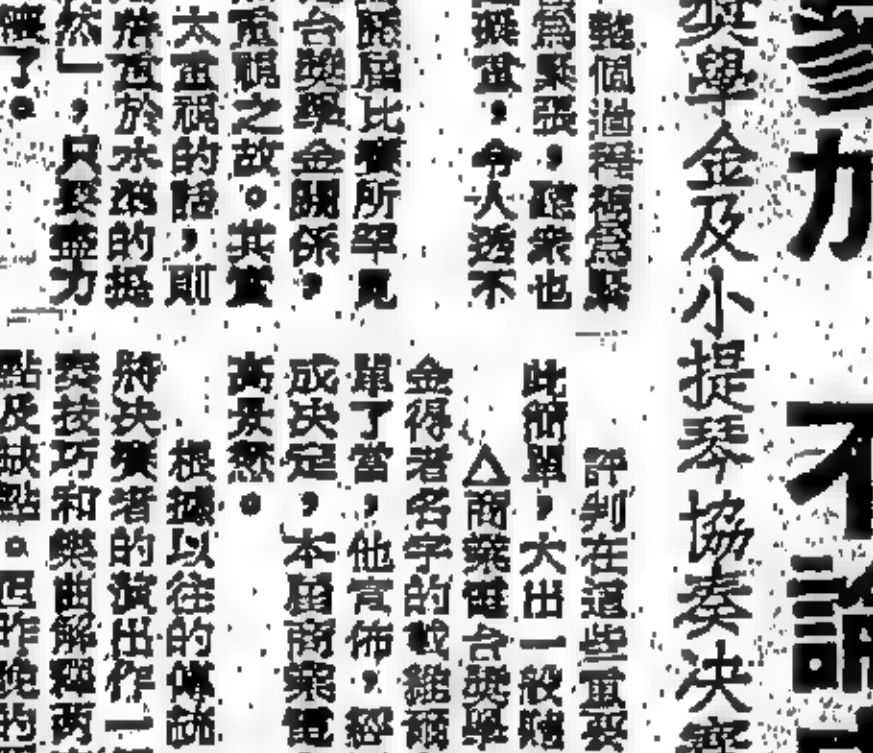 力 不論
獎學金及小提琴協奏決賽
整個過程極為緊
為緊張,聽衆也
凝重,令人透不
歷屆比賽所罕見
台獎學金關係,
重視之故。其實
太重視的話,則
於水準的提
」,只要盡力
了。
評判在這些重要
此簡單,大出一般賭
△商業電台獎學
金得者名字的戴維爾
單了當,他宣佈,經
成決定,本屆商業電
根據以往的傳統
將決賽者的演出作一
奏技巧和樂曲解釋两
點及缺點。但昨晚的